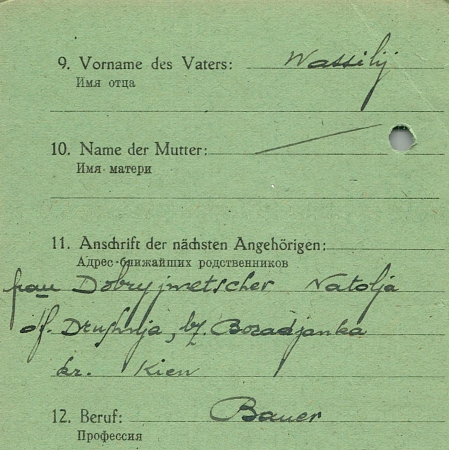 9. Vorname des Vaters: Wassilij
Имя отца
10. Name der Mutter:
Имя матери
11. Anschrift der nächsten Angehörigen:
Адрес ближайших родственников
frau Dobryjwetscher Natolja
df. Drushnja, bz. Boradjanka
kr. Kiew
12. Beruf: Bauer
Профессия